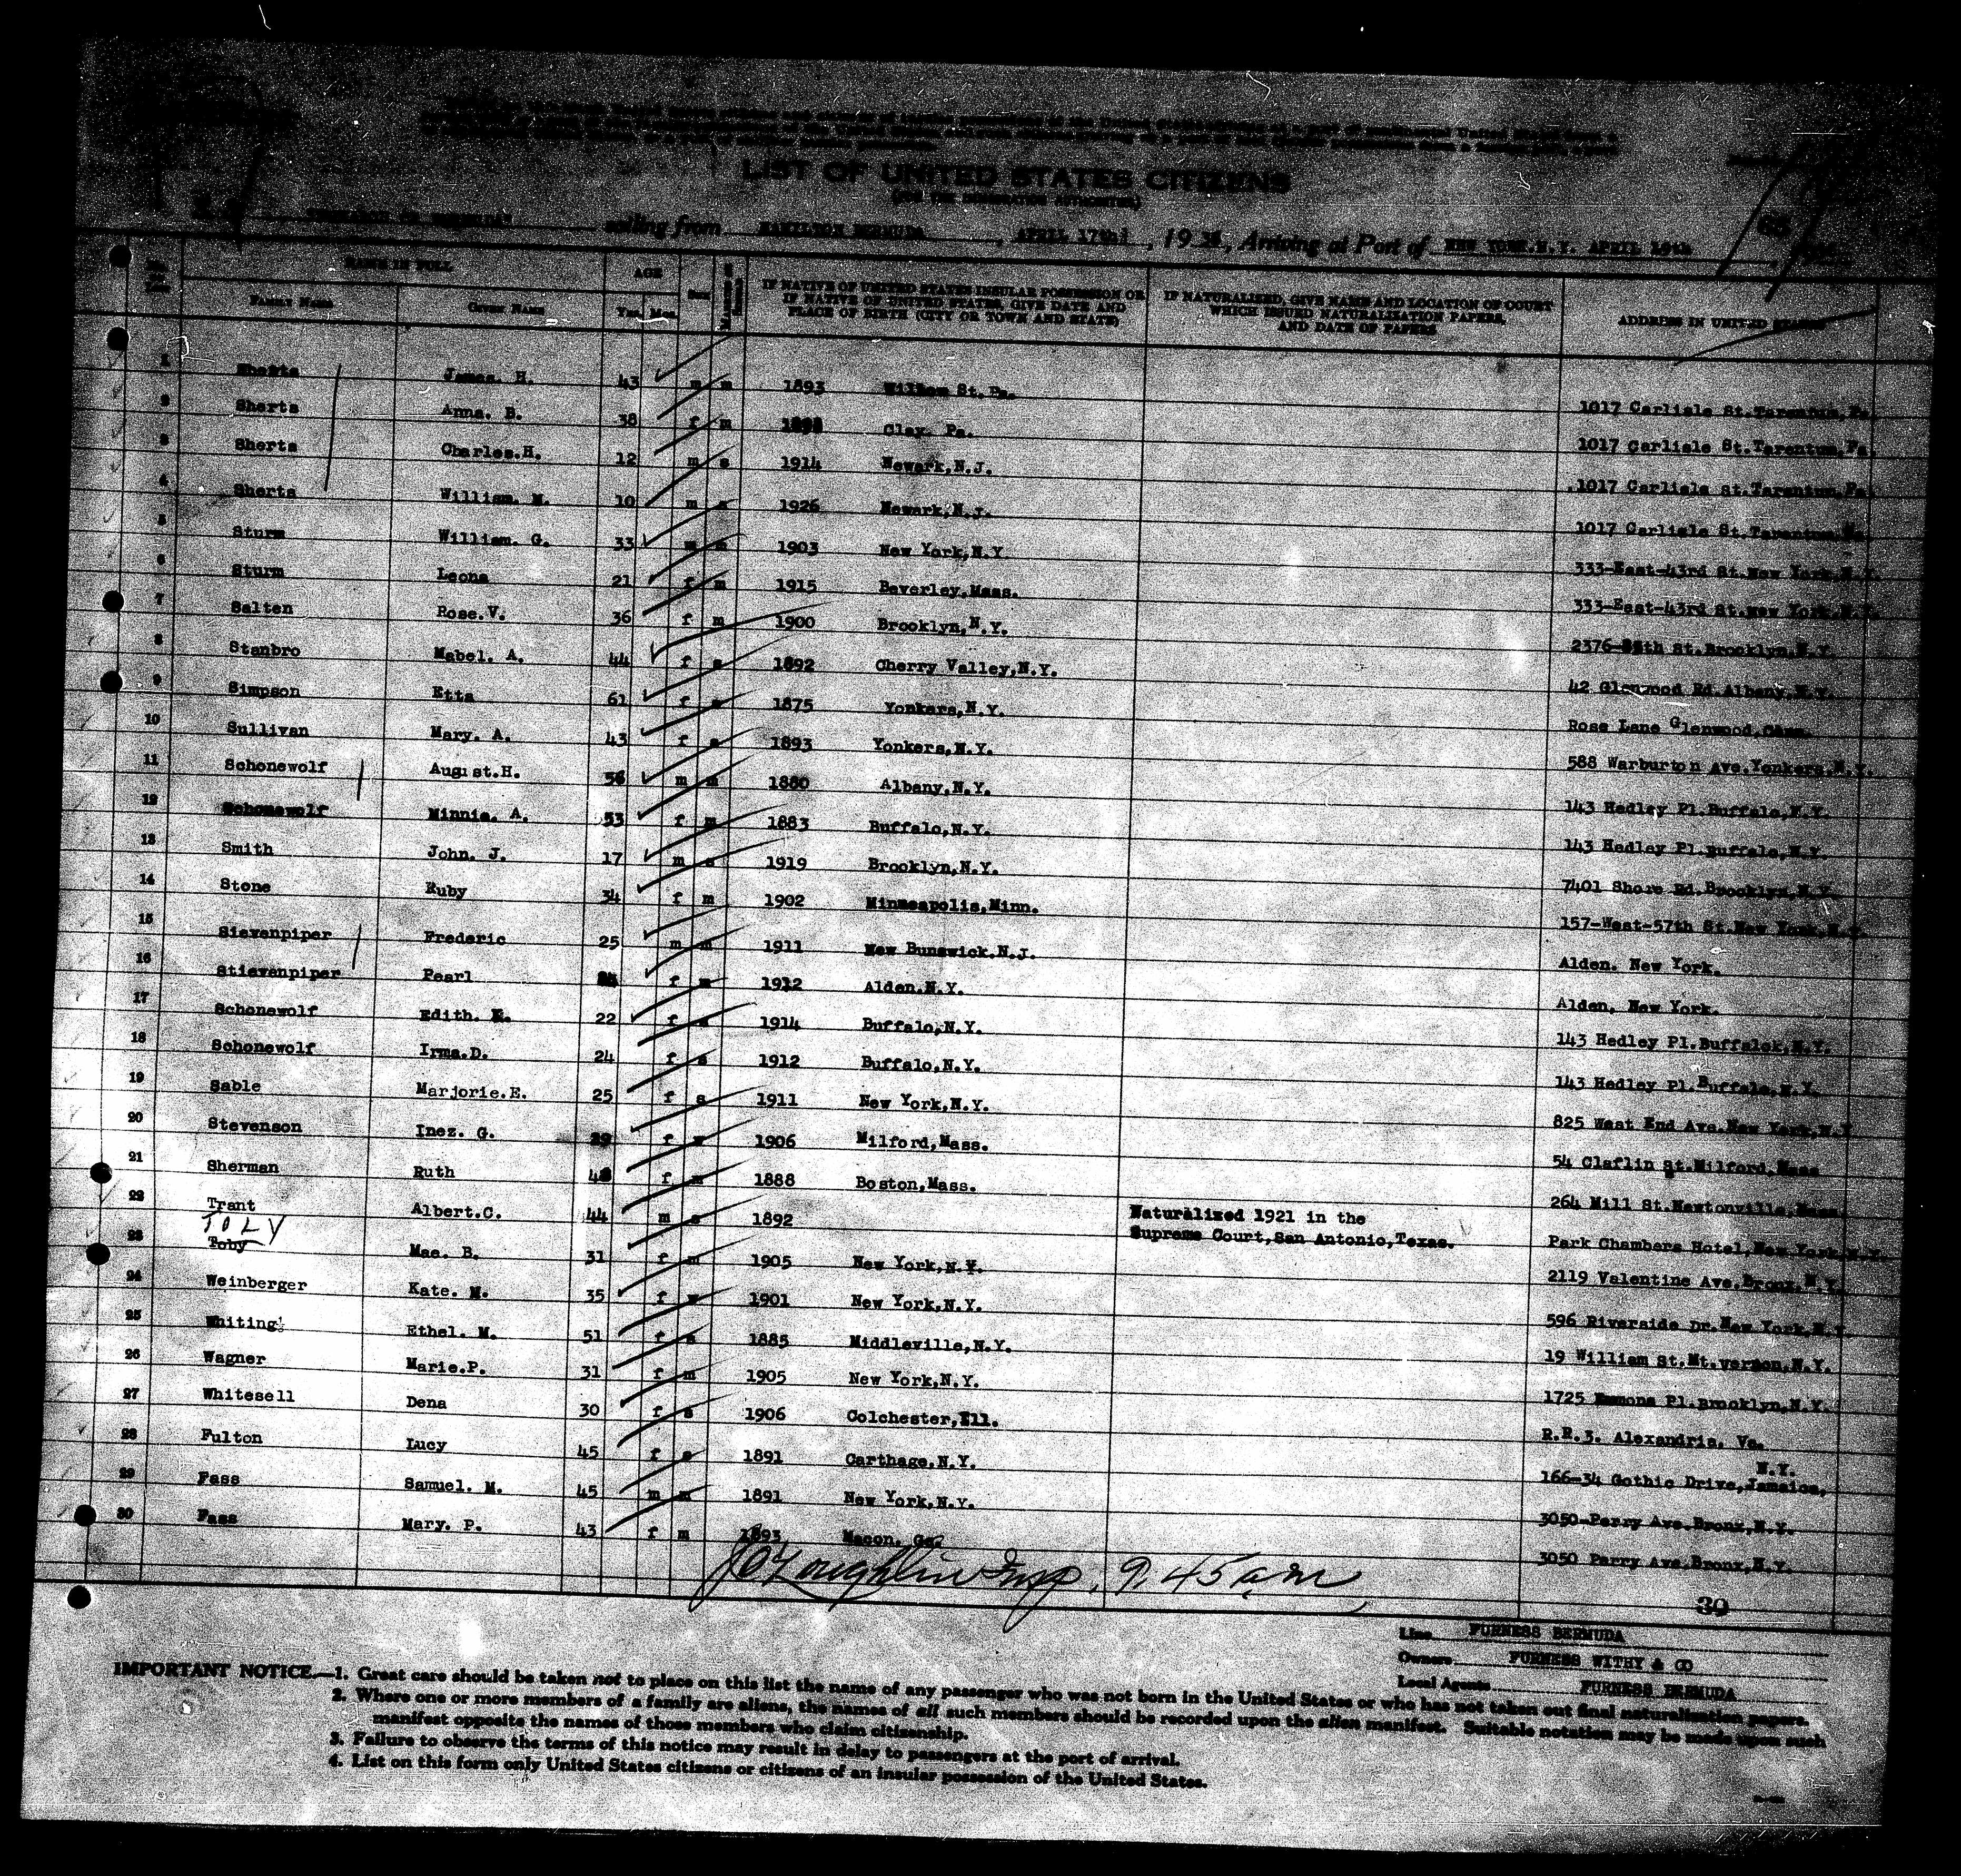 LIST OF UNITED STATES CITIZENS
(FOR THE IMMIGRATION AUTHORITIES)
sailing from HAMILTON BERMUDA, APRIL 17th, 19 , Arriving at Port of NEW YORK.N.Y. APRIL 19th
NAME IN FULL AGE Sex IF NATIVE OF UNITED STATES INSULAR POSSESSION OR IF NATIVE OF UNITED STATES, GIVE DATE AND PLACE OF BIRTH (CITY OR TOWN AND STATE) IF NATURALIZED, GIVE NAME AND LOCATION OF COURT WHICH ISSUED NATURALIZATION PAPERS, AND DATE OF PAPERS ADDRESS IN UNITED STATES
FAMILY NAME GIVEN NAME Yrs. Mos.
1 Sherts James. H. 43 m m 1893 St. Pa. 1017 Carlisle St.Tarentum,Pa.
2 Sherts Anna. B. 38 f m Clay. Pa. 1017 Carlisle St.Tarentum,Pa.
3 Sherts Charles.H. 12 m s 1914 Newark,N.J. 1017 Carlisle St.Tarentum,Pa.
4 Sherts William. M. 10 m s 1926 Newark,N.J. 1017 Carlisle St.Tarentum,Pa.
5 Sturm William. G. 33 m m 1903 New York,N.Y. 333-East-43rd St.New York,N.Y.
6 Sturm Leona 21 f m 1915 Beverley,Mass. 333-East-43rd St.New York,N.Y.
7 Salten Rose.V. 36 f m 1900 Brooklyn,N.Y. St.Brooklyn,N.Y.
8 Stanbro Mabel. A. 44 f s 1892 Cherry Valley,N.Y. 42 Glenwood Rd.Albany,N.Y.
9 Simpson Etta 61 f s 1875 Yonkers,N.Y. Rose Lane Glenwood,Conn.
10 Sullivan Mary. A. 43 f s 1893 Yonkers,N.Y. 588 Warburton Ave.Yonkers,N.Y.
11 Schonewolf August.H. 56 m m 1880 Albany,N.Y. 143 Hedley Pl.Buffalo,N.Y.
12 Schonewolf Minnie. A. 53 f m 1883 Buffalo,N.Y. 143 Hedley Pl.Buffalo,N.Y.
13 Smith John. J. 17 m s 1919 Brooklyn,N.Y. 7401 Shore Rd.Brooklyn,N.Y.
14 Stone Ruby 34 f m 1902 Minneapolis,Minn. 157-West-57th St.New York,N.Y.
15 Sievenpiper Frederic 25 m m 1911 New Bunswick.N.J. Alden. New York.
16 Stievenpiper Pearl f m 1912 Alden.N.Y. Alden, New York.
17 Schonewolf Edith. E. 22 f s 1914 Buffalo,N.Y. 143 Hedley Pl.Buffalok,N.Y.
18 Schonewolf Irma.D. 24 f s 1912 Buffalo,N.Y. 143 Hedley Pl.Buffalo,N.Y.
19 Sable Marjorie.E. 25 f s 1911 New York,N.Y. 825 West End Ave.New York,N.Y
20 Stevenson Inez. G. 29 f 1906 Milford,Mass. 54 Claflin St.Milford,Mass
21 Sherman Ruth 48 f 1888 Boston,Mass. 264 Mill St.Newtonville,Mass.
22 Trant Albert.C. 44 m s 1892 Naturalized 1921 in the Supreme Court,San Antonio,Texas. Park Chambers Hotel,New York,N.Y.
TOLY
23 Toby Mae. B. 31 f m 1905 New York,N.Y. 2119 Valentine Ave.Bronx,N.Y.
24 Weinberger Kate. M. 35 f 1901 New York,N.Y. 596 Riverside Dr.New York,N.Y.
25 Whiting Ethel. M. 51 f s 1885 Middleville,N.Y. 19 William St.Mt.Vernon,N.Y.
26 Wagner Marie.P. 31 f m 1905 New York,N.Y. 1725 Emmons Pl.Brooklyn,N.Y.
27 Whitesell Dena 30 f s 1906 Colchester,Ill. R.R.3. Alexandria, Va.
28 Fulton Lucy 45 f s 1891 Carthage.N.Y. 166-34 Gothic Drive,Jamaica, N.Y.
29 Fass Samuel. M. 45 m m 1891 New York,N.Y. 3050-Perry Ave.Bronx,N.Y.
30 Fass Mary. P. 43 f m 1893 Macon. Ga. 3050 Perry Ave.Bronx,N.Y.
J O'Loughlin Insp. 9.45 am
30
Line FURNESS BERMUDA
Owners FURNESS WITHY & CO
Local Agents FURNESS BERMUDA
IMPORTANT NOTICE.—1. Great care should be taken not to place on this list the name of any passenger who was not born in the United States or who has not taken out final naturalization papers.
2. Where one or more members of a family are aliens, the names of all such members should be recorded upon the alien manifest. Suitable notation may be made upon such
manifest opposite the names of those members who claim citizenship.
3. Failure to observe the terms of this notice may result in delay to passengers at the port of arrival.
4. List on this form only United States citizens or citizens of an insular possession of the United States.